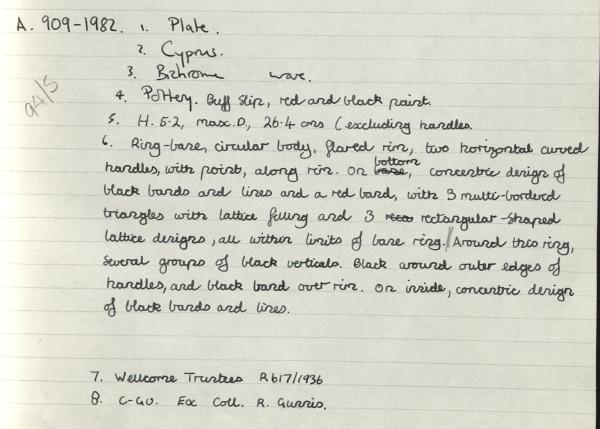 A. 909-1982. 1. Plate.
2. Cyprus.
3. Bichrome ware.
94/5
4. Pottery. Buff slip, red and black paint.
5. H. 5.2, max. D., 26.4 cms (excluding handles.
6. Ring-base, circular body, flared rim, two horizontal curved
handles, with point, along rim. On bottom, concentric design of
black bands and lines and a red band, with 3 multi-bordered
triangles with lattice filling and 3 rectangular-shaped
lattice designs, all within limits of base ring. Around this ring,
several groups of black verticals. Black around outer edges of
handles, and black band over rim. On inside, concentric design
of black bands and lines.
7. Wellcome Trustees R617/1936
8. Ex Coll. R. Gunnis.